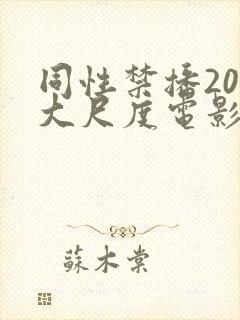 同性禁播20
大尺度电影
蘇木棠